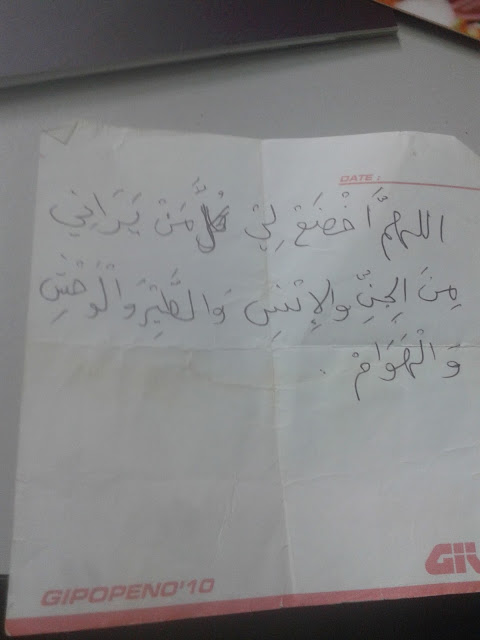 DATE :
اللهمَّ أَخْضَعْ لِيْ كُلَّ مَنْ يَرَانِي
مِنَ الجِنِّ والإِنْسِ وَالطَّيْرِ وَالْوَحْشِ
وَالْهَوَامْ .
GIV
GIPOPENO'10